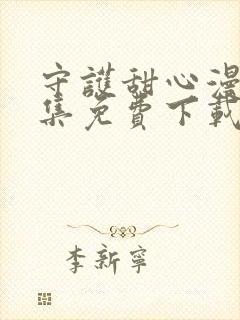 守護甜心漫
集免費下載
李新寧